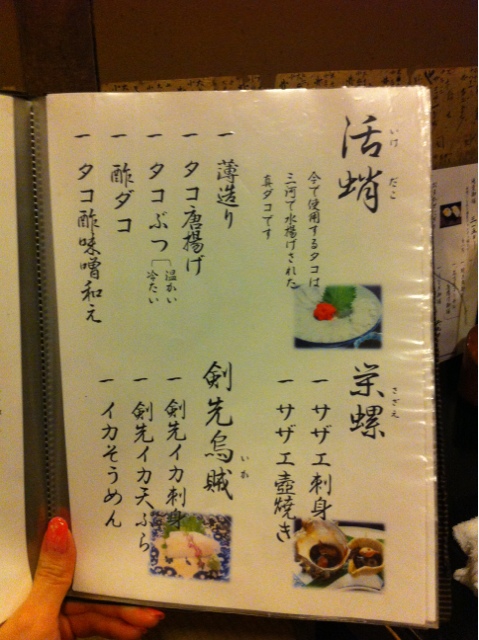 活蛸
いけ だこ
今で使用するタコは
三河で水揚げされた
真ダコです
一 薄造り
一 タコ唐揚げ
一 タコぶつ
温かい
冷たい
一 酢ダコ
一 タコ酢味噌和え
栄螺
さざえ
一 サザエ刺身
一 サザエ壺焼き
剣先烏賊
いか
一 剣先イカ刺身
一 剣先イカ天ぷら
一 イカそうめん